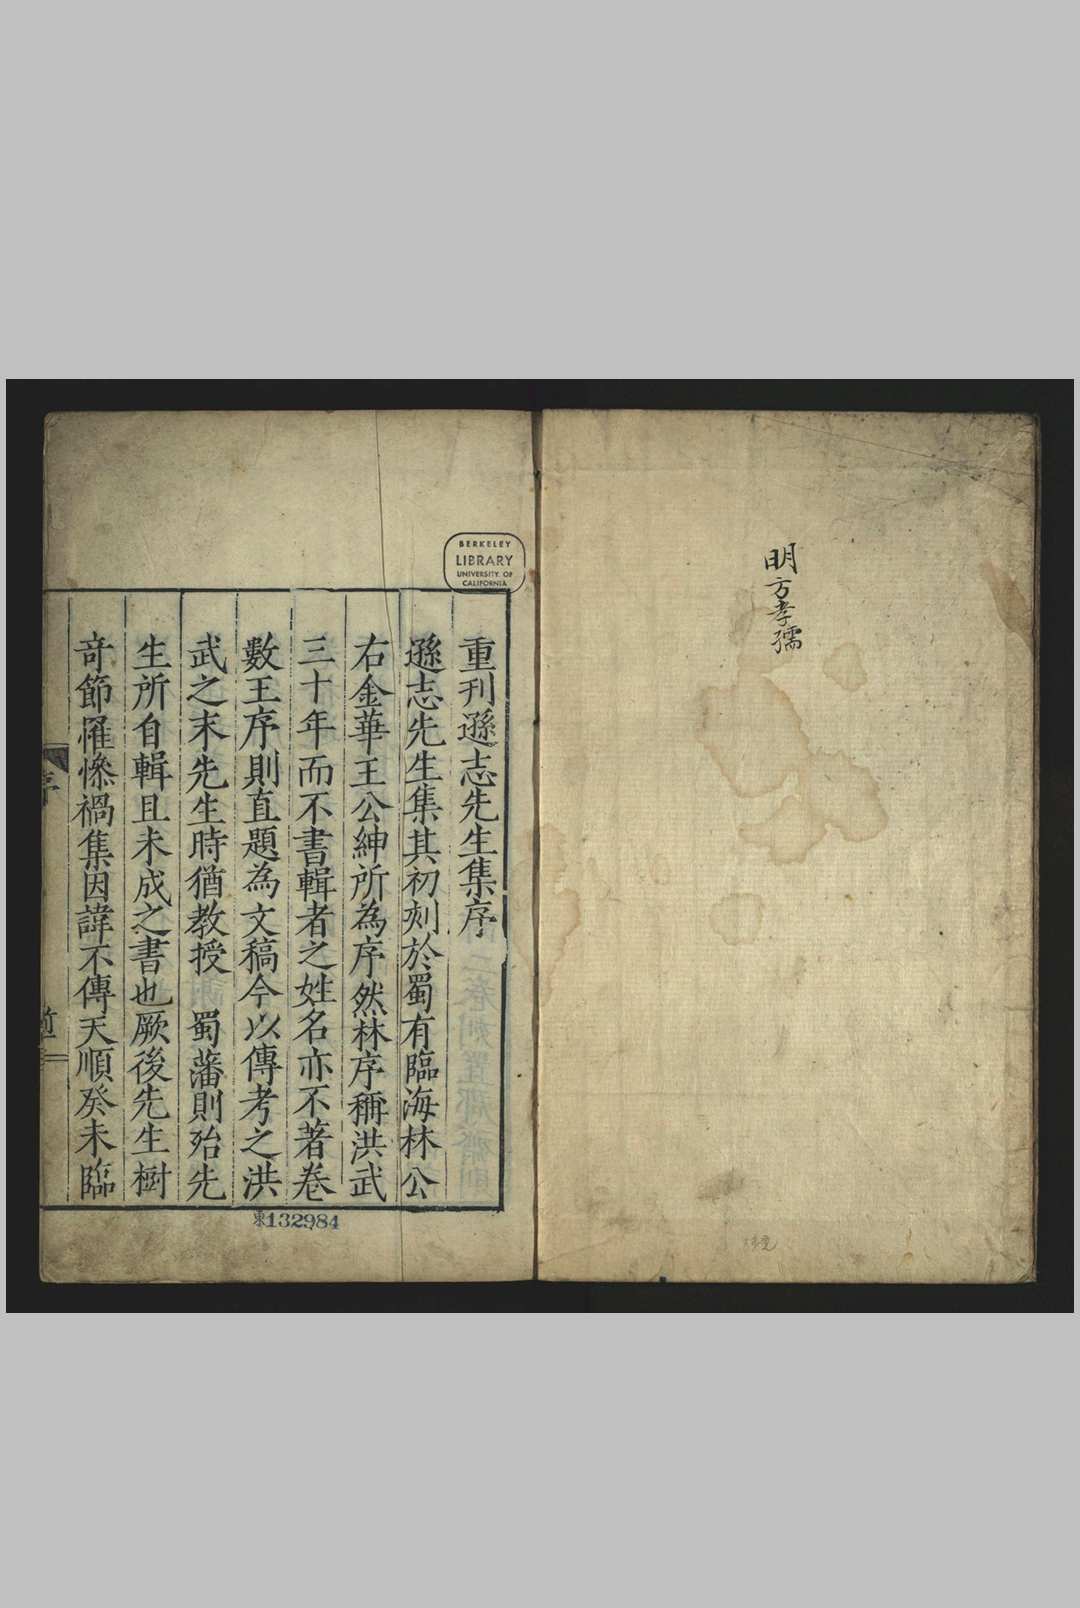 明方孝孺
BERKELEY
LIBRARY
UNIVERSITY OF
CALIFORNIA
重刊遜志先生集序
遜志先生集其初刻於蜀有臨海林公
右金華王公紳所為序然林序稱洪武
三十年而不書輯者之姓名亦不著卷
數王序則直題為文稿今以傳考之洪
武之末先生時猶教授 蜀藩則殆先
生所自輯且未成之書也厥後先生樹
奇節罹慘禍集因諱不傳天順癸未臨
序
東132984